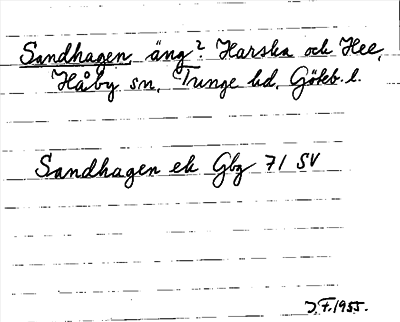 Sandhagen, äng? Harska och Hee,
Håby sn, Tunge hd, Göteb. l.
Sandhagen ek Gbg 71 SV
J.F. 1955.